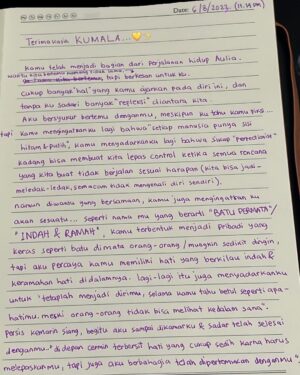 Date: 6/8/2023 (11.14 pm)
Terimakasih KUMALA...
kamu telah menjadi bagian dari perjalanan hidup Aulia.
waktu kita bertemu memang tidak lama,
tapi berkesan untuk ku.
Cukup banyak "hal" yang kamu ajarkan pada diri ini, dan
tanpa ku sadari banyak "refleksi" diantara kita.
Aku bersyukur bertemu denganmu, meskipun ku tahu kamu
tapi kamu mengingatkanku lagi bahwa "setiap manusia punya sisi
hitam & putih", kamu menyadarkanku lagi bahwa sikap
kadang bisa membuat kita lepas control ketika semua rencana
yang kita buat tidak berjalan sesuai harapan (kita bisa jadi
meledak-ledak, semacam tidak mengenali diri sendiri).
namun diwaktu yang bersamaan, kamu juga mengingatkan ku
akan sesuatu... seperti nama mu yang berarti "BATU PERMATA"/
"INDAH & RAMAH", kamu terbentuk menjadi pribadi yang
keras seperti batu dimata orang-orang / mungkin sedikit dingin,
tapi aku percaya kamu memiliki hati yang berkilau indah &
keramahan hati didalamnya. lagi-lagi itu juga menyadarkanku
untuk "tetaplah menjadi dirimu, selama kamu tahu betul seperti apa-
hatimu. meski orang-orang tidak bisa melihat kedalam sana".
persis kemarin siang, begitu aku sampai dikamarku & sadar telah selesai
denganmu - didepan cermin terbersit hati yang cukup sedih karna harus
melepaskanmu, tapi juga aku berbahagia telah dipertemukan denganmu.